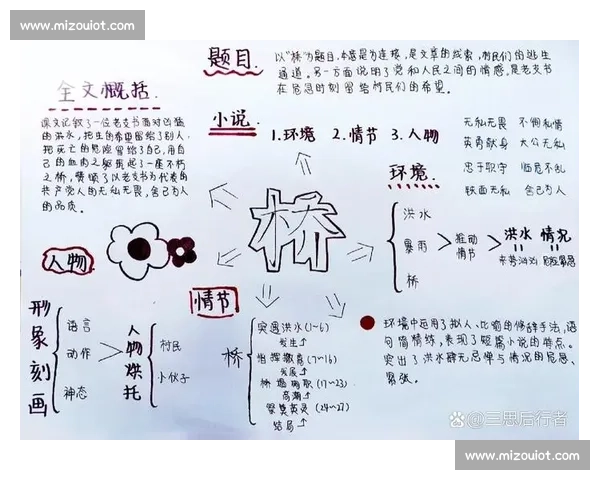 www.mizouiot.com
题目.
以"桥"为题目,本意是为连接,是文章的线索,村民们的逃生
通道。另一方面说明了党和人民之间的情感,是老支书
在危急时刻留给村民们的希望。
全文概括.
课文记叙了一位老支书面对凶猛
的洪水,把生的希望留给了别人,
把死亡的危险留给了自己,用自
己的血肉之躯筑起了一座不朽
之桥,赞颂了以老支书为代表的
共产党人的无私无畏,舍己为人
的品质。
小说.
1.环境 2.情节 3.人物
无私无畏 不徇私情
英勇献身 大公无私
忠于职守 临危不乱
铁面无私 舍己为人
环境.
洪水
暴雨
桥
推动
情节
洪水 情况
桥
人物
情节
形象刻画
语言
动作
神态
人物烘托
村民
小伙子
桥
突遇洪水(1~6)
发生
指挥撤离(7~16)
发展
桥塌殉职(17~23)
高潮
祭奠英灵(24~27)
结局
环境中运用了拟人、比喻的修辞手法,语
句简精练,表现了短篇小说的特点。
突出了洪水肆无忌惮与情况的危急、
紧张。
@三思后行者
www.mizouiot.com